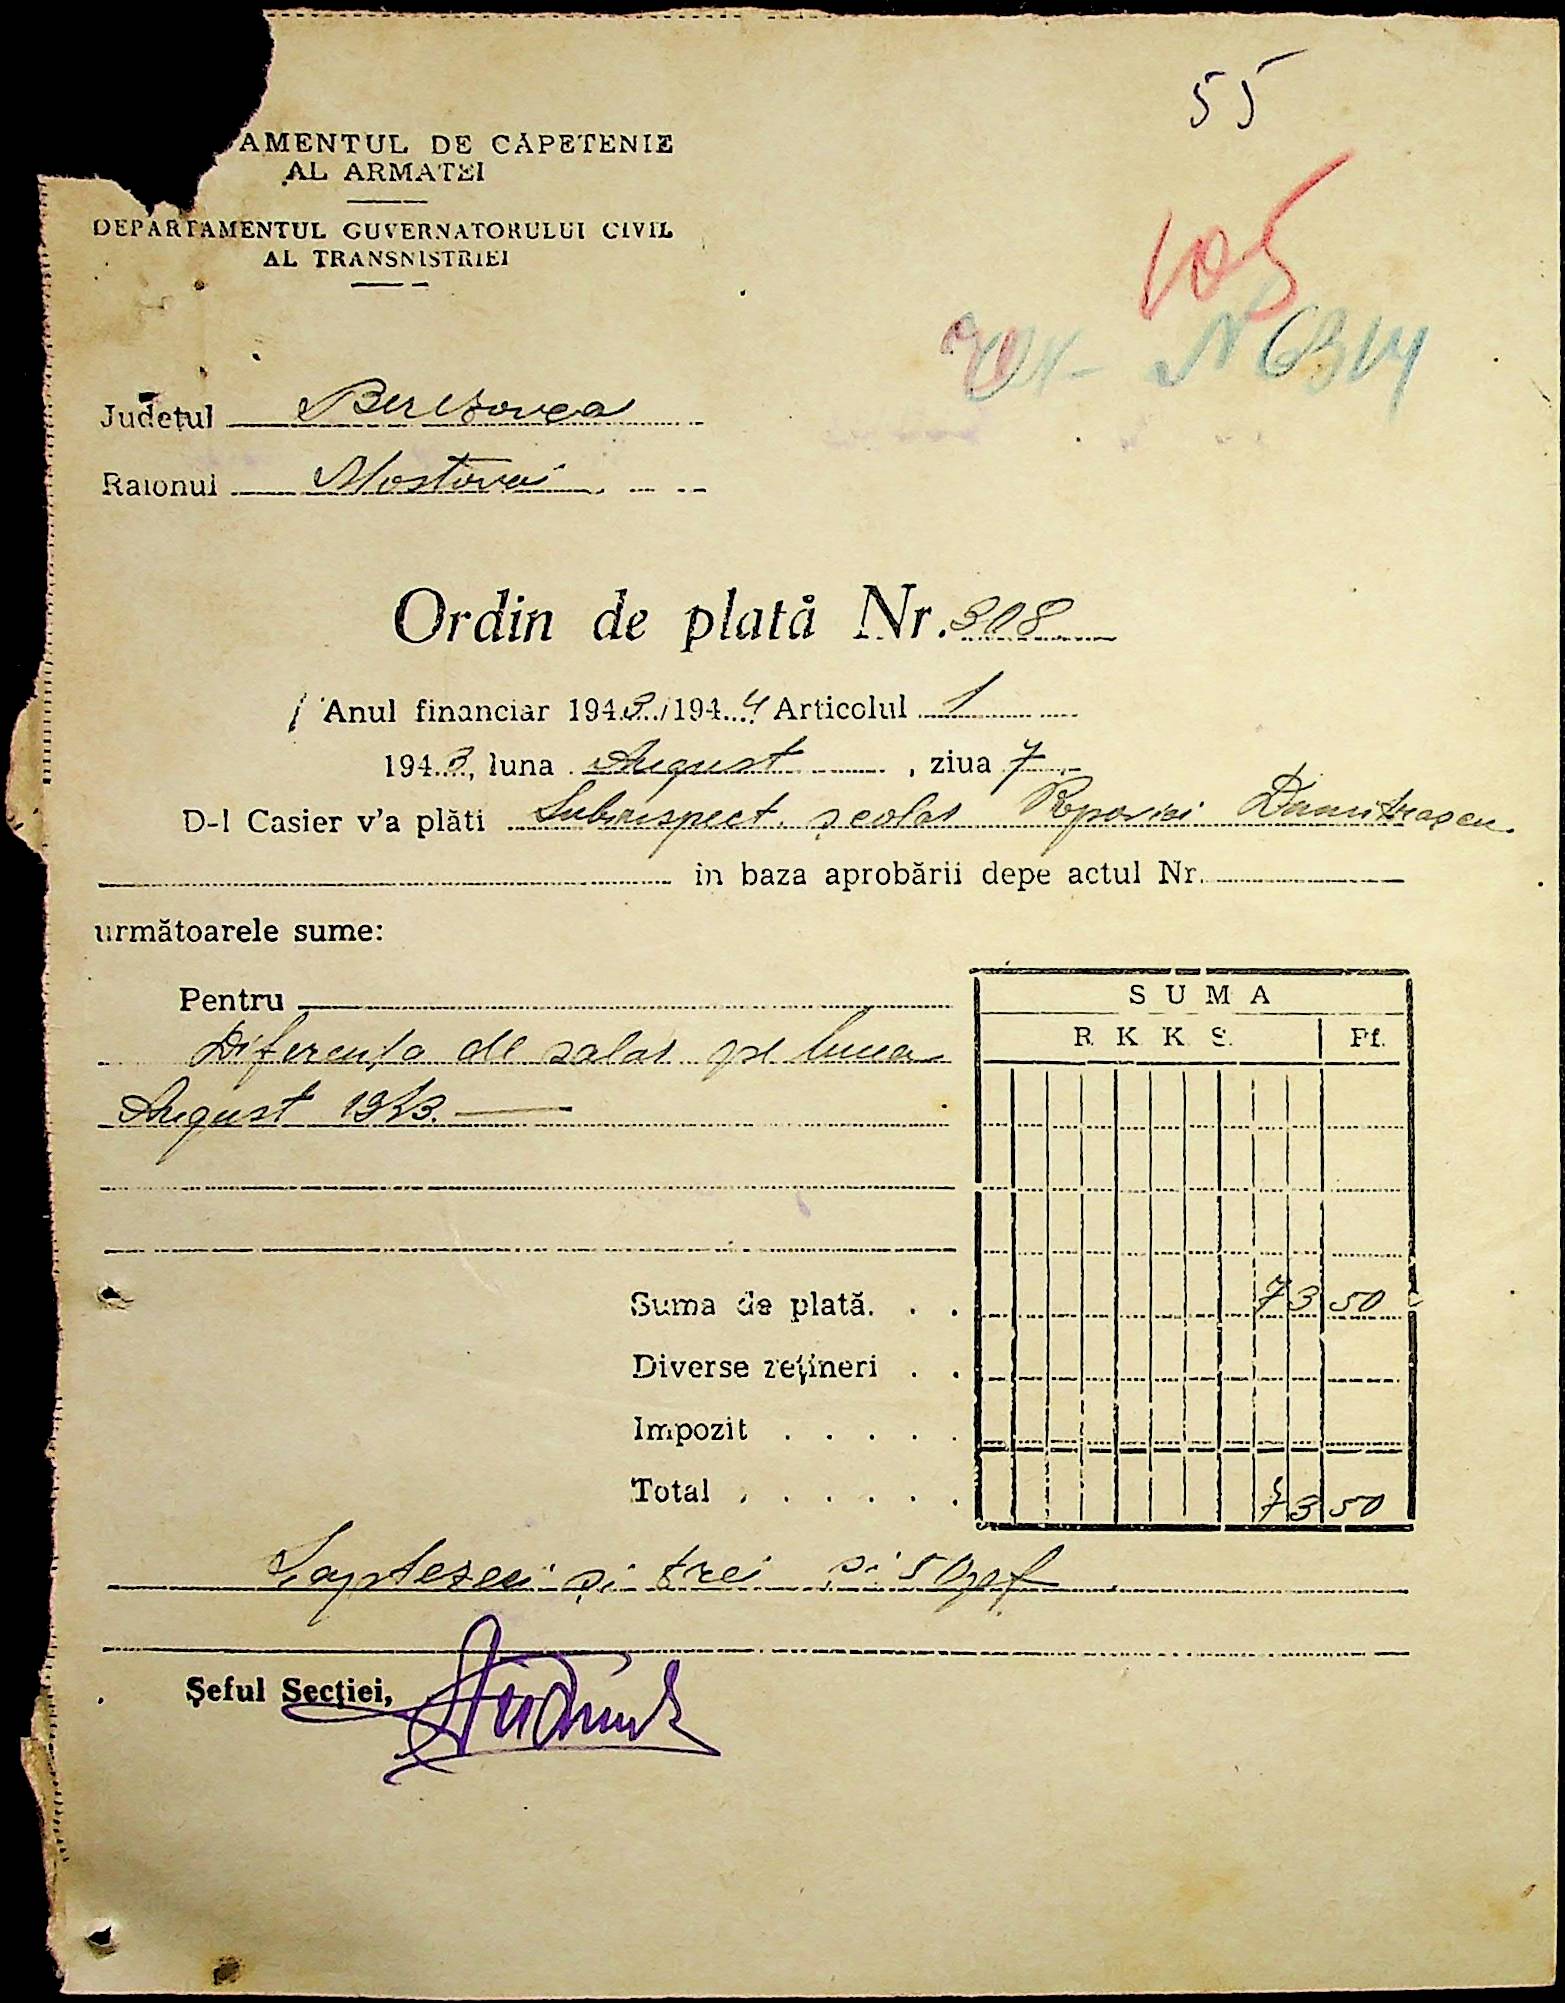 55
AMENTUL DE CĂPETENIE
AL ARMATEI
DEPARTAMENTUL GUVERNATORULUI CIVIL
AL TRANSNISTRIEI
105
N 6314
Județul Berezovca
Raionul Mostovoi
Ordin de plată Nr. 308
Anul financiar 1943/1944 Articolul 1
1943, luna August, ziua 7
D-l Casier v'a plăti Subinspect. școlar Dumitrașcu
in baza aprobării depe actul Nr.
următoarele sume:
Pentru
Diferența de salar pe luna
August 1943.
SUMA
R K K S. Pf.
Suma de plată. . . 73 50
Diverse rețineri . .
Impozit . . . . .
Total . . . . . . 73 50
Șaptezeci și trei și 50 pf
Șeful Secției,